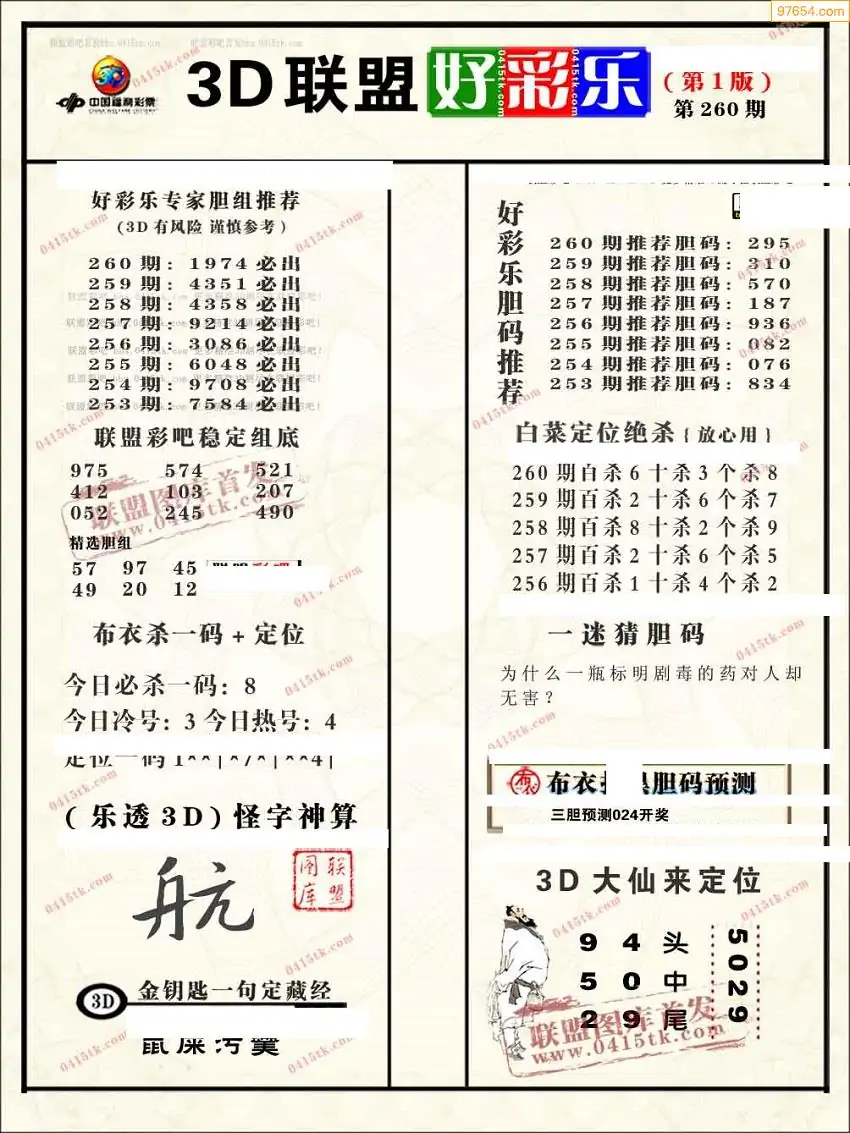 97654.com
3D联盟好彩乐
(第1版)
第260期
中国福利彩票
CHINA WELFARE LOTTERY
好彩乐专家胆组推荐
(3D有风险 谨慎参考)
260期: 1974必出
259期: 4351必出
258期: 4358必出
257期: 9214必出
256期: 3086必出
255期: 6048必出
254期: 9708必出
253期: 7584必出
联盟彩吧稳定组底
975 574 521
412 103 207
052 245 490
精选胆组
57 97 45
49 20 12
布衣杀一码+定位
今日必杀一码: 8
今日冷号: 3 今日热号: 4
定位一码 1**|*7*|**4|
(乐透3D)怪字神算
航
联盟图库
3D 金钥匙一句定藏经
鼠屎污羹
好彩乐胆码推荐
260期推荐胆码: 295
259期推荐胆码: 310
258期推荐胆码: 570
257期推荐胆码: 187
256期推荐胆码: 936
255期推荐胆码: 082
254期推荐胆码: 076
253期推荐胆码: 834
白菜定位绝杀{放心用}
260期百杀6十杀3个杀8
259期百杀2十杀6个杀7
258期百杀8十杀2个杀9
257期百杀2十杀6个杀5
256期百杀1十杀4个杀2
一迷猜胆码
为什么一瓶标明剧毒的药对人却
无害?
布衣 胆码预测
三胆预测024开奖
3D大仙来定位
9 4 头
5 0 中
2 9 尾
5029
联盟图库首发
www.0415tk.com